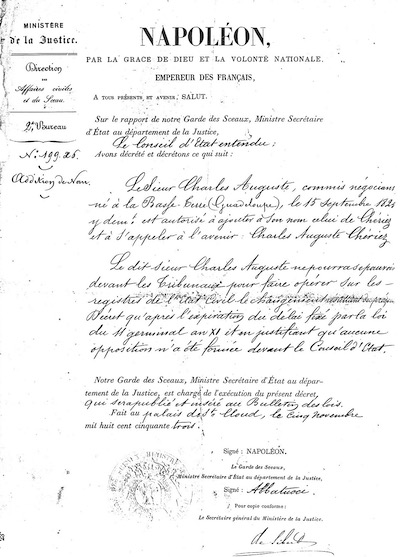 MINISTÈRE
de la Justice.
Direction
des
Affaires civiles
et du Sceau.
2e Bureau
N° 199 X5.
Addition de Nom.
NAPOLÉON,
PAR LA GRACE DE DIEU ET LA VOLONTÉ NATIONALE,
EMPEREUR DES FRANÇAIS,
A TOUS PRÉSENTS ET AVENIR, SALUT.
Sur le rapport de notre Garde des Sceaux, Ministre Secrétaire
d'État au département de la Justice,
Le Conseil d'Etat entendu ;
Avons décrété et décrétons ce qui suit :
Le Sieur Charles Auguste, commis négociant
né à la Basse-Terre (Guadeloupe), le 15 Septembre 1824
y demt est autorisé à ajouter à son nom celui de Chériez
et à S'appeler à l'avenir : Charles Auguste Chériez
Le dit Sieur Charles Auguste ne pourra se pourvoir
devant les Tribunaux pour faire opérer sur les
registres de l'Etat Civil le changement résultant du présent
Décret qu'après l'expiration du délai fixé par la loi
du 11 germinal an XI et en justifiant qu'aucune
opposition n'a été formée devant le Conseil d'Etat.
Notre Garde des Sceaux, Ministre Secrétaire d'État au dépar-
tement de la Justice, est chargé de l'exécution du présent décret,
qui sera publié et inséré au Bulletin des lois.
Fait au palais de St Cloud, le cinq novembre
mil huit cent cinquante trois.
Signé : NAPOLÉON.
Le Garde des Sceaux,
Ministre Secrétaire d'État au département de la Justice,
Signé : Abbatucci.
Pour copie conforme :
Le Secrétaire général du Ministère de la Justice,